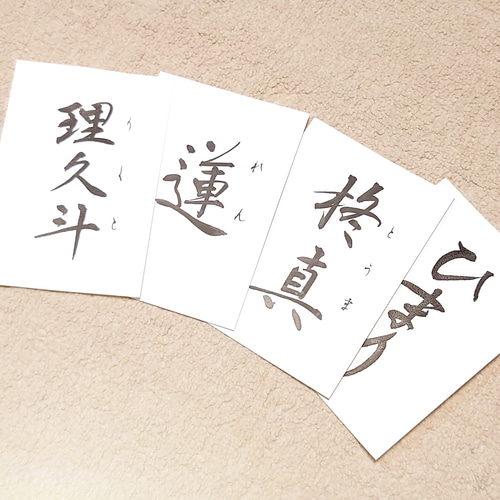 理久斗
りくと
蓮
れん
柊真
とうま
ひまり